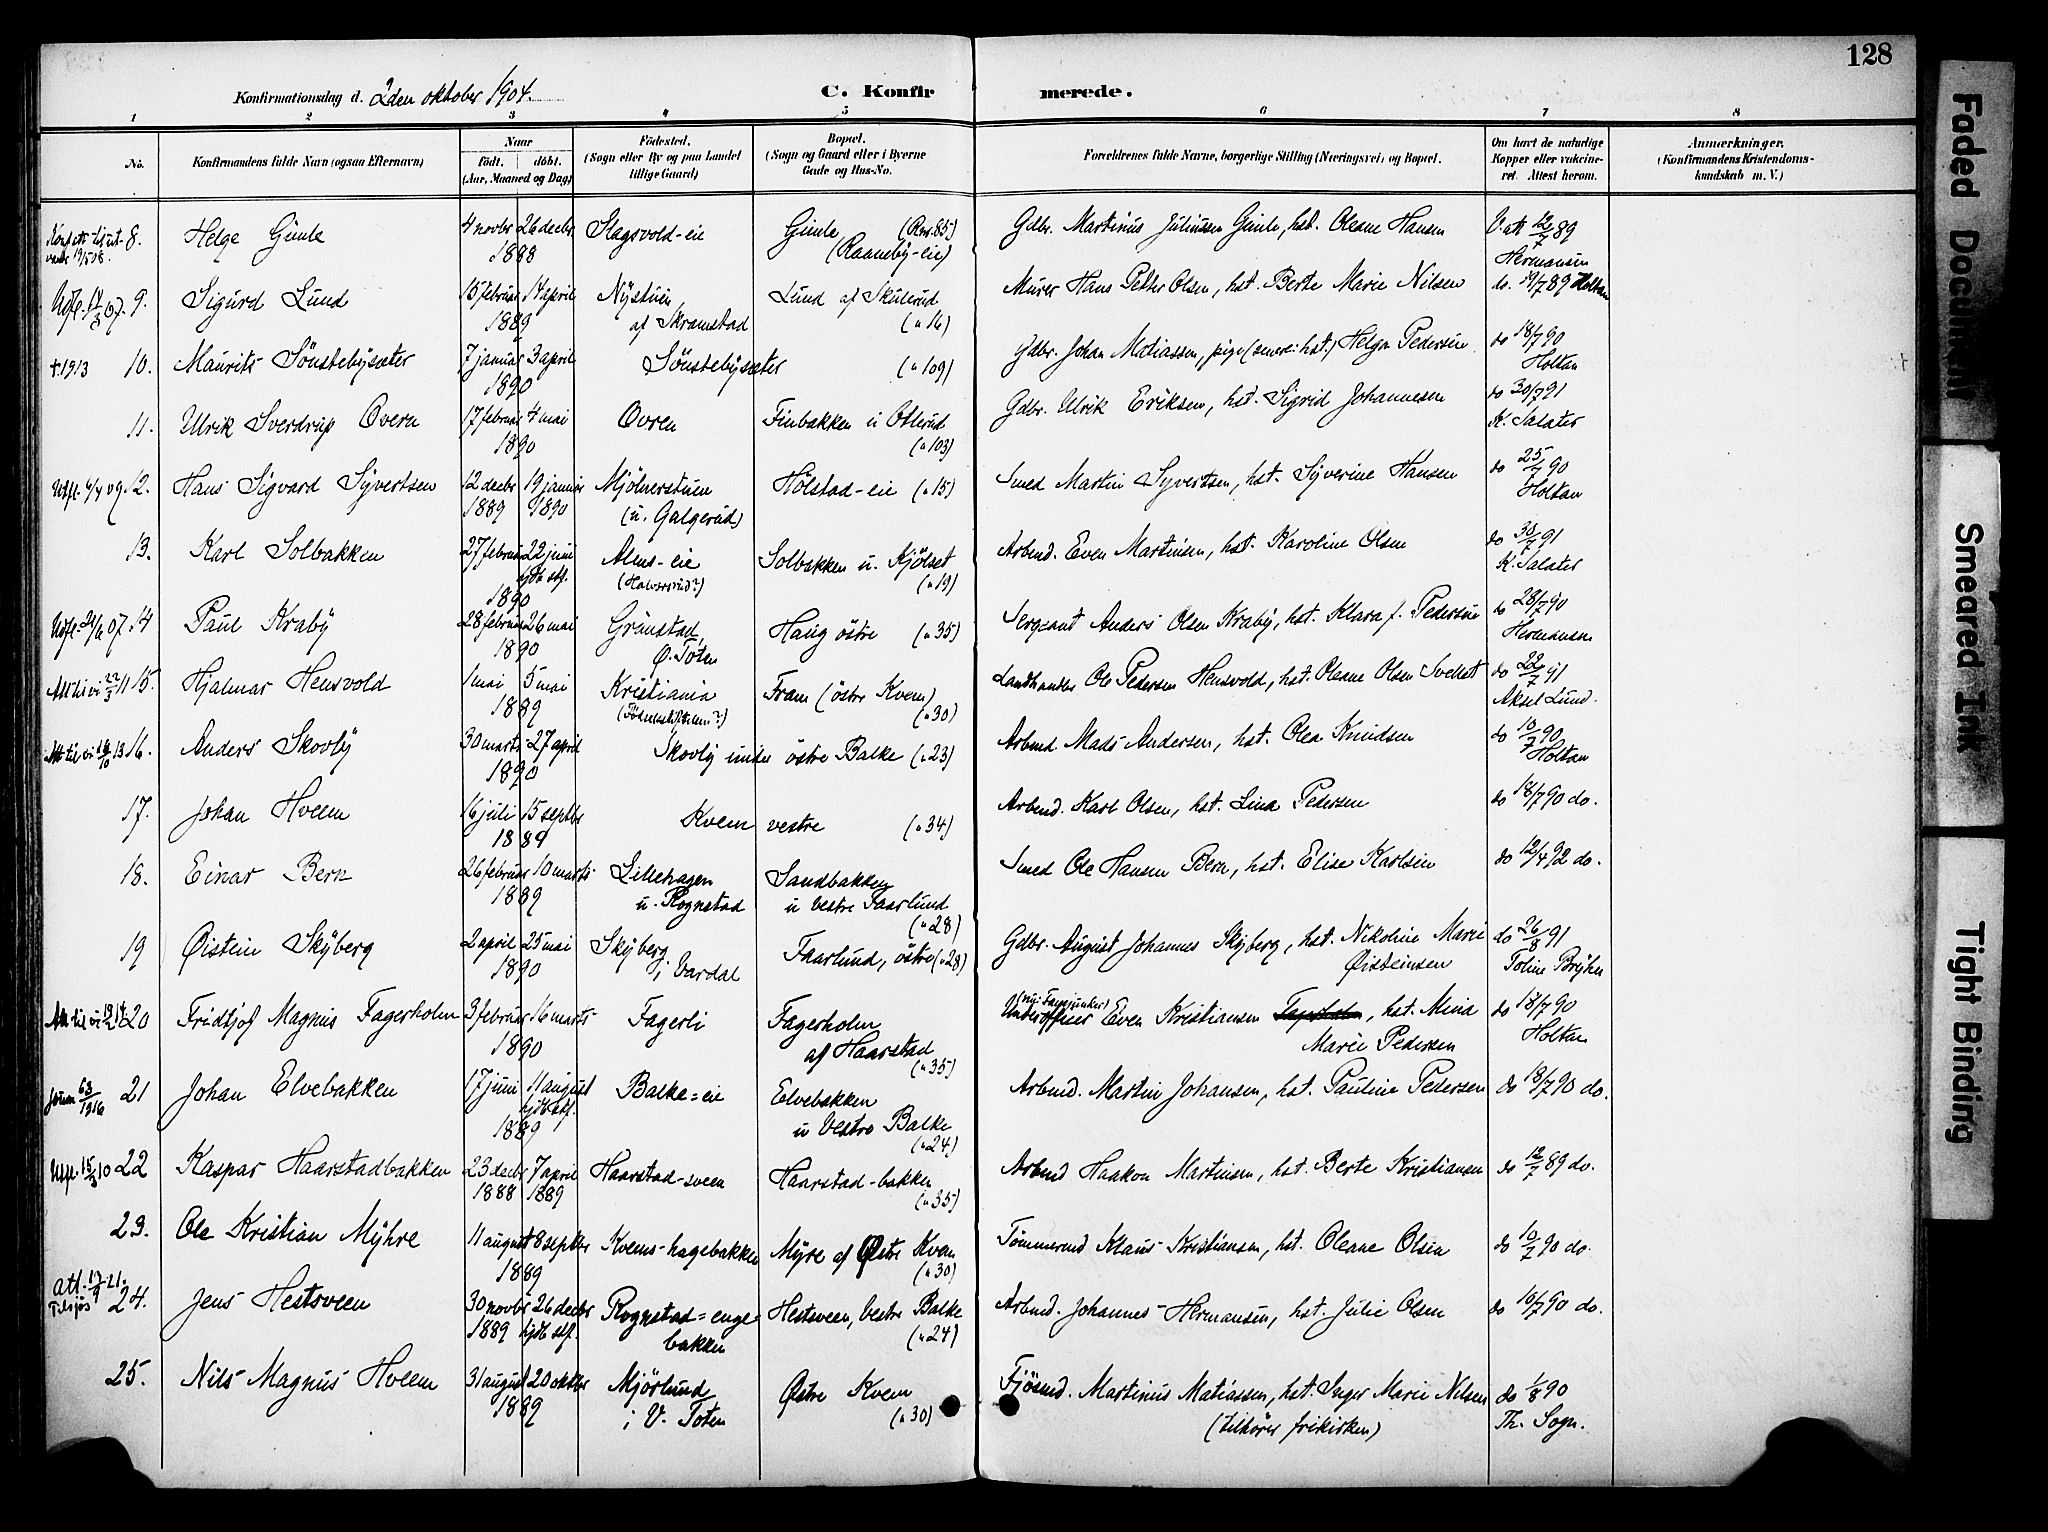 128
Konfirmationsdag d. 2den oktober 1904.
C. Konfirmerede.
1 2 3 4 5 6 7 8
No.
Konfirmandens fulde Navn (ogsaa Efternavn)
Naar
født, døbt.
(Aar, Maaned og Dag)
Fødested.
(Sogn eller By og paa Landet
tillige Gaard)
Bopæl.
(Sogn og Gaard eller i Byerne
Gade og Hus-No.
Forældrenes fulde Navne, borgerlige Stilling (Næringsvei) og Bopæl.
Om havt de naturlige
Kopper eller vakcine-
ret. Attest herom.
Anmærkninger.
(Konfirmandens Kristendoms-
kundskab m. V.)
8. Helge Gimle 4 novbr 26 decbr 1888 Stagsvold-eie Gimle (Raaneby-eie) Gdbr. Martinus Juliussen Gimle, hst. Oleane Hansen V. att 12/7 89 Hermansen
Utfl. 9. Sigurd Lund 15 februar 14 april 1889 Nystuen, af Skramstad Lund af Skulerud (" 16) Murer Hans Petter Olsen, hst. Berte Marie Nilsen do. 19/7 89 Holtan
+ 1913 10. Maurits Sönstebysæter 7 januar 3 april 1890 Sönstebysæter (" 109) Gdbr. Johan Matiassen, pige (senere: hst.) Helga Pedersen do 18/7 90 Holtan
11. Ulrik Sverdrup Overn 17 februar 4 mai 1890 Ovren Finbakken u Otterud (" 103) Gdbr. Ulrik Eriksen, hst. Sigrid Johannesen do 30/7 91 K. Salater
Utfl. 4/4 09. 12. Hans Sigvard Syvertsen 12 decbr 1889 19 januar 1890 Mjölnerstuen (u. Galgerud) Hölstad-eie (" 15) Smed Martin Syvertsen, hst. Syverine Hansen do 25/7 90 Holtan
13. Karl Solbakken 27 februar 22 juni hjdb stf. 1890 Alms-eie (Halvorsrud?) Solbakken u. Kjölset (" 19) Arbmd. Even Martinsen, hst. Karoline Olsen do 30/7 91 K. Salater
Utfl. 07. 14 Paul Kraby 28 februar 26 mai 1890 Grönstad, Ø. Toten Haug östre (" 35) Sergeant Anders Olsen Kraby, hst. Klara f. Pedersen do 28/7 90 Hermansen
Att til vi 22/3 11 15. Hjalmar Hensvold 1 mai 5 mai 1889 Kristiania (Födselsstiftelsen?) Fram (östre Kvem) (" 30) Landhandler Ole Pedersen Hensvold, hst. Oleane Olsen Sveltet do 22/7 91 Aksel Lund.
Att til vi 13 16. Anders Skovly 30 marts 27 april 1890 Skovly under östre Balke (" 23) Arbmd Mads Andersen, hst. Olea Knudsen do 10/7 90 Holtan
17. Johan Hveem 16 juli 15 septbr 1889 Kveem vestre (" 34) Arbmd. Karl Olsen, hst. Lina Pedersen do 18/7 90 do.
18. Einar Bern 26 februar 10 marts 1889 Lillehagen u. Rognstad Sandbakken u vestre Faarlund (" 28) Smed Ole Hansen Bern, hst. Elise Karlsen do 12/4 92 do.
19 Øistein Skyberg 2 april 25 mai 1890 Skyberg i Vardal Faarlund, östre (" 28) Gdbr. August Johannes Skyberg, hst. Nikoline Marie Øisteinsen do 26/8 91 Toline Bryhn
Att til vi 20 Fridtjof Magnus Fagerholm 3 februar 16 marts 1890 Fagerli Fagerholm af Haarstad (" 35) Underofficer (nu: Fanejunker) Even Kristiansen, hst. Mina Marie Pedersen do 18/7 90 Holtan
63/1916 21 Johan Elvebakken 17 juni 11 august hjdb stf. 1889 Balke=eie Elvebakken u Vestre Balke (" 24) Arbmd. Martin Johansen, hst. Pauline Pedersen do 18/7 90 do.
Utfl. 15/3 10 22 Kaspar Haarstadbakken 23 decbr 1888 7 april 1889 Haarstad-sveen Haarstad-bakken (" 35) Arbmd Haakon Martinsen, hst. Berte Kristiansen do 12/7 89 do.
23. Ole Kristian Myhre 11 august 8 septbr 1889 Kvems-hagebakken Myre af Østre Kvem (" 30) Tömmermd Klaus Kristiansen, hst. Oleane Olsen do 10/7 90 do.
Att. 24. Jens Hestsveen 30 novbr 1889 26 decbr hjdb stf. Rognstad=enge-bakken Hestsveen, vestre Balke (" 24) Arbmd. Johannes Hermansen, hst. Julie Olsen do 10/7 90 do.
25. Nils Magnus Hveem 31 august 20 oktbr 1889 Mjörlund i V. Toten Østre Kvem (" 30) Fjösmd. Martinus Matiassen, hst. Inger Marie Nilsen (tilhörer frikirken) do 1/8 90 Th. Sogn.
Faded Document
Smeared Ink
Tight Binding